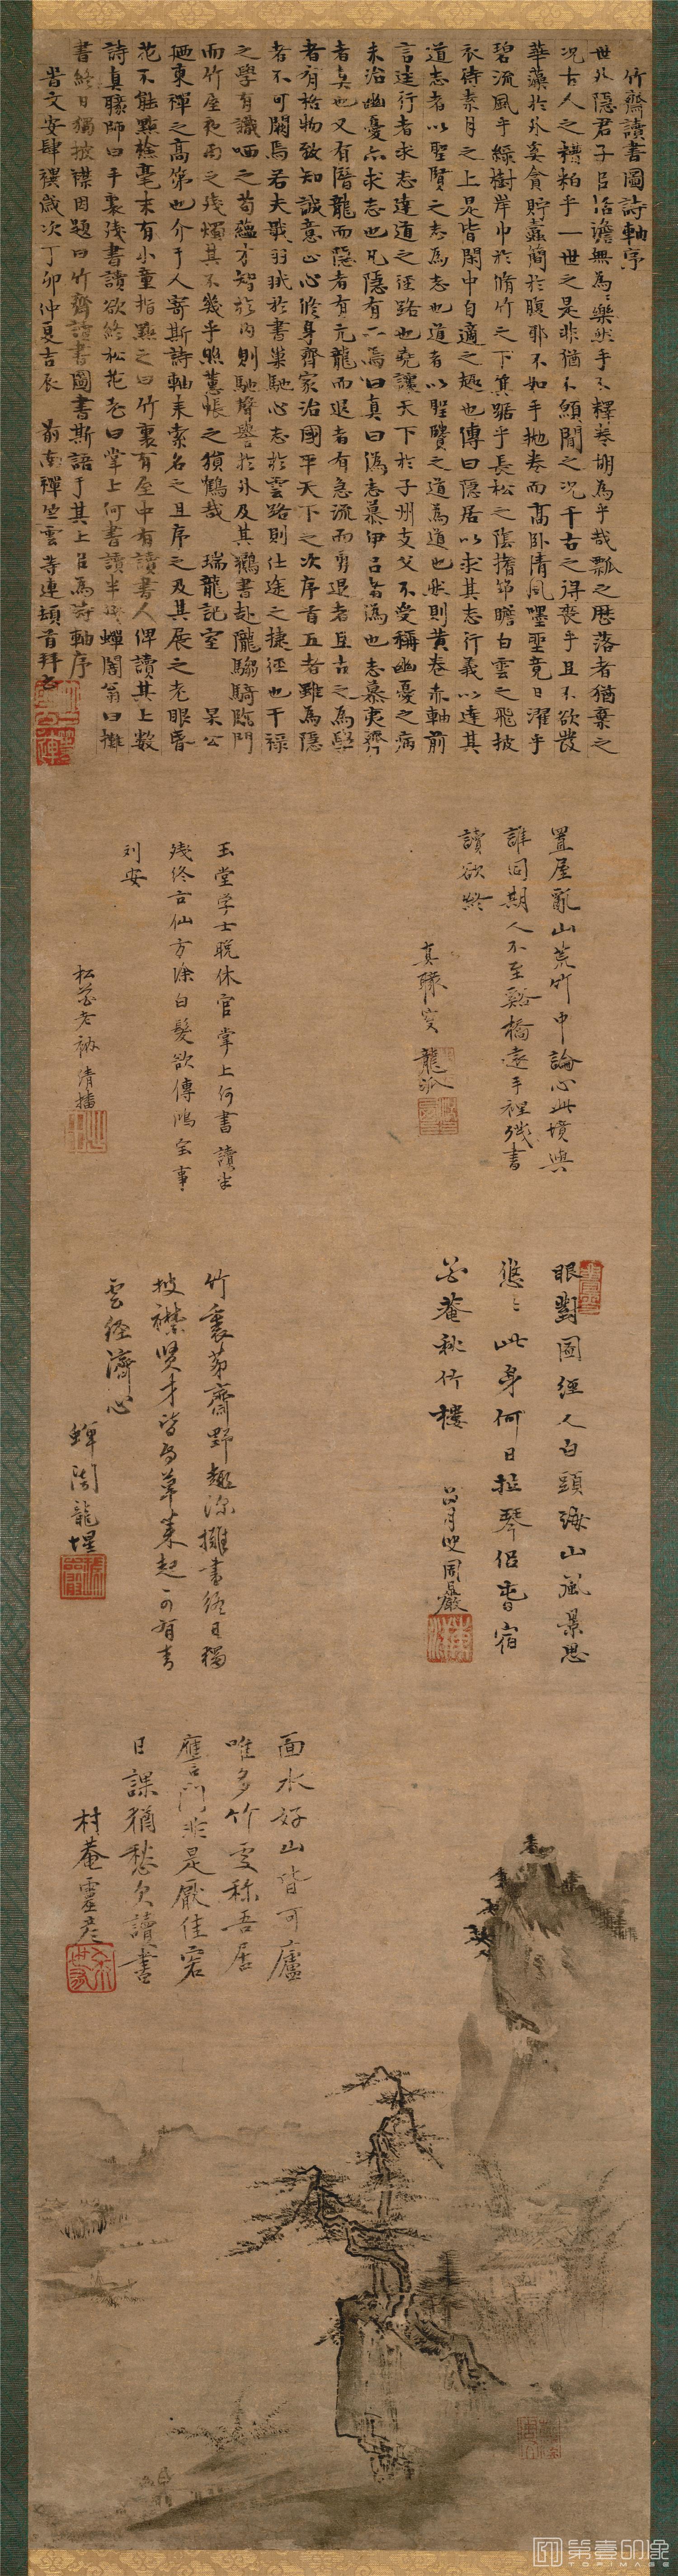 竹齋讀書圖詩軸序
世外隱君子自活澹無為為樂然手不釋卷胡為乎哉瓢之歷落者猶棄之
況古人之糟粕乎一世之是非猶不願聞之況千古之得喪乎且不欲發
華藻於外奚貪貯蠹簡於腹耶不如手拋卷而高臥清風嘐竟日濯乎
碧流風乎綠樹岸巾於脩竹之下箕踞乎長松之陰搘笻瞻白雲之飛披
衣待素月之上是皆閑中自適之趣也傳曰隱居以求其志行義以達其
道志者以聖賢之志為志也道者以聖賢之道為道也然則黃卷赤軸前
言往行者求志達道之徑路也堯讓天下於子州支父不受稱幽憂之病
未治幽憂亦求志也凡隱有二焉曰真曰偽志慕伊呂者偽也志慕夷齊
者真也又有潛龍而隱者有亢龍而退者有急流而勇退者且古之為學
者有格物致知誠意正心修身齊家治國平天下之次序吾五者雖為隱
者不可闕焉若夫戢羽翼於書巢馳心志於雲路則仕途之捷徑也干祿
之學有識哂之苟蘊才智於內則馳聲譽於外及其鶴書赴隴騶騎臨門
而竹屋夜雨之殘燭其不幾乎照蕙帳之猿鶴哉 瑞龍記室 杲公
廼東禪之高弟也介于人寄斯詩軸來索名之且序之及其展之老眼昏
花不能點檢毫末有小童指點之曰竹裏有屋中有讀書人俾讀其上數
詩真牧師曰手裏殘書讀欲終松花老曰掌上何書讀半殘蟬闇翁曰擁
書終日獨披襟因題曰竹齋讀書圖書斯語于其上以為詩軸序
旹文安肆禩歲次丁卯仲夏吉辰 前南禪竺雲等連頓首拜書
置屋亂山荒竹中論心此境與
誰同期人不至谿橋遠手裡殘書
讀欲終
龍派
玉堂学士晩休官掌上何書讀半
殘終古仙方涂白髮欲傳鴻宝事
刘安
松花老衲清播
眼對圖經人白頭海山風景思
悠々此身何日拉琴侶
菴秋竹樓
周嚴
竹裏茅齋野趣深擁書終日獨
披襟賢才皆为草萊起可有青
雲經濟心
蟬闇龍惺
面水好山皆可廬
唯多竹處称吾居
應門非是厭佳客
日課猶愁欠讀書
村菴靈彦
第壹印象
TOPIMAGE